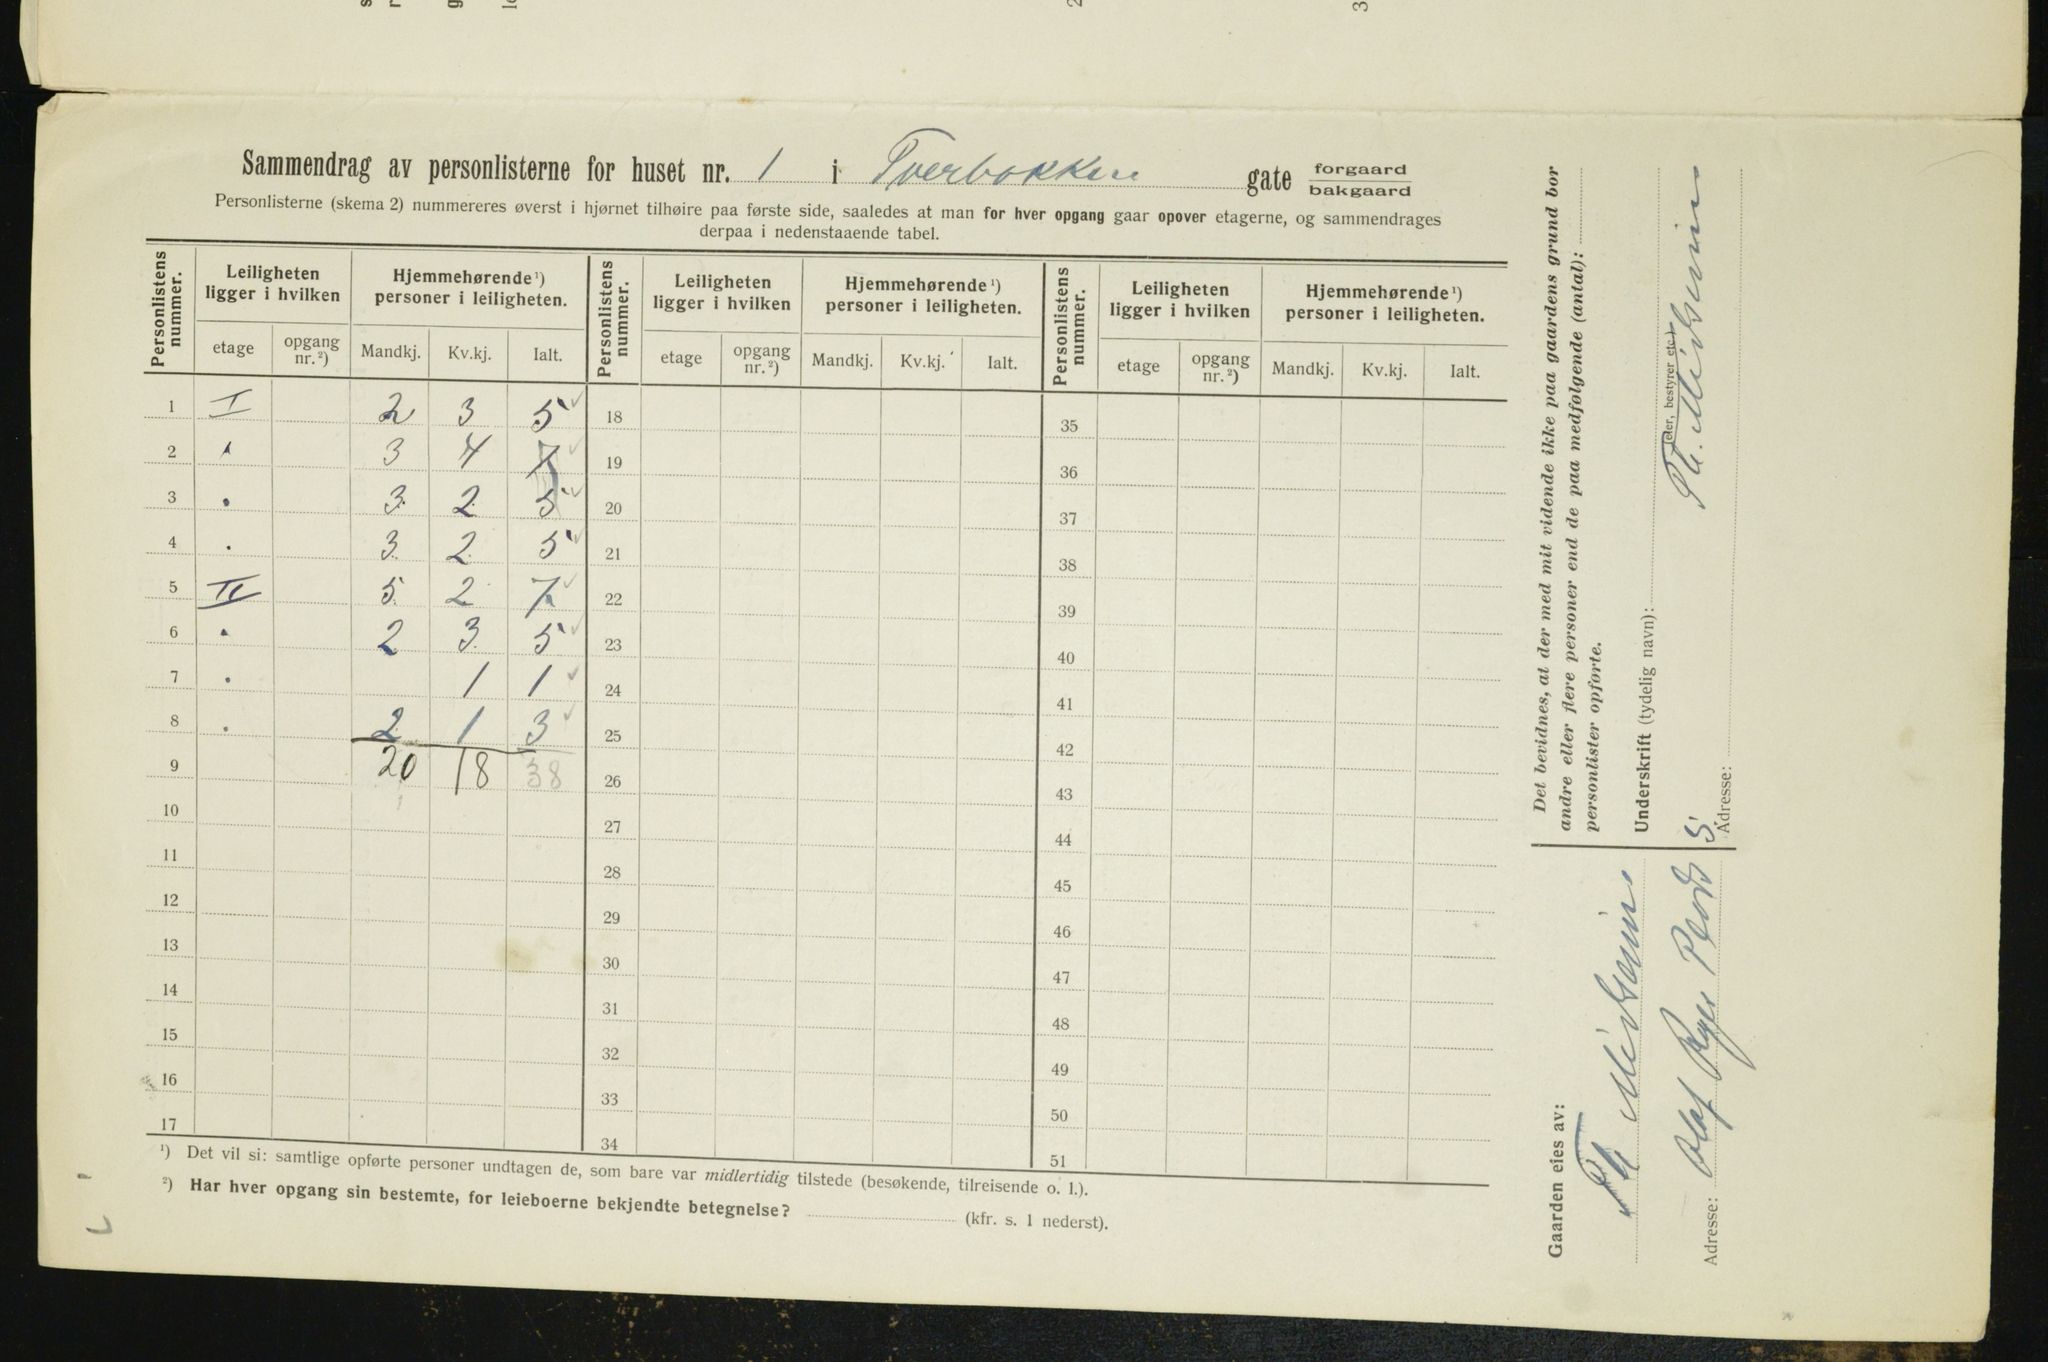 Sammendrag av personlisterne for huset nr. 1 i Tverbakken gate forgaard bakgaard
Personlisterne (skema 2) nummereres øverst i hjørnet tilhøire paa første side, saaledes at man for hver opgang gaar opover etagerne, og sammendrages
derpaa i nedenstaaende tabel.
Personlistens nummer. Leiligheten ligger i hvilken Hjemmehørende ¹) personer i leiligheten. Personlistens nummer. Leiligheten ligger i hvilken Hjemmehørende ¹) personer i leiligheten. Personlistens nummer. Leiligheten ligger i hvilken Hjemmehørende ¹) personer i leiligheten.
etage opgang nr. ²) Mandkj. Kv.kj. Ialt. etage opgang nr. ²) Mandkj. Kv.kj. Ialt. etage opgang nr. ²) Mandkj. Kv.kj. Ialt.
1 I 2 3 5 18 35
2 3 4 7 19 36
3 3 2 5 20 37
4 3 2 5 21 38
5 II 5 2 7 22 39
6 2 3 5 23 40
7 1 1 24 41
8 2 1 3 25 42
9 20 18 38 26 43
10 27 44
11 28 45
12 29 46
13 30 47
14 31 48
15 32 49
16 33 50
17 34 51
¹) Det vil si: samtlige opførte personer undtagen de, som bare var midlertidig tilstede (besøkende, tilreisende o. l.).
²) Har hver opgang sin bestemte, for leieboerne bekjendte betegnelse? (kfr. s. 1 nederst).
Gaarden eies av:
Adresse: Olaf Ryes Plads 5
Det bevidnes, at der med mit vidende ikke paa gaardens grund bor
andre eller flere personer end de paa medfølgende (antal):
personlister opførte.
Underskrift (tydelig navn):
(eier, bestyrer etc.)
Adresse: